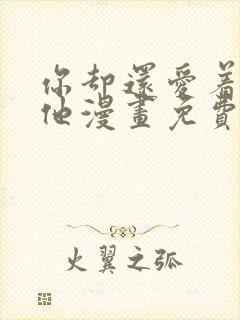 你却還愛着
他漫畫免費
火翼之弧